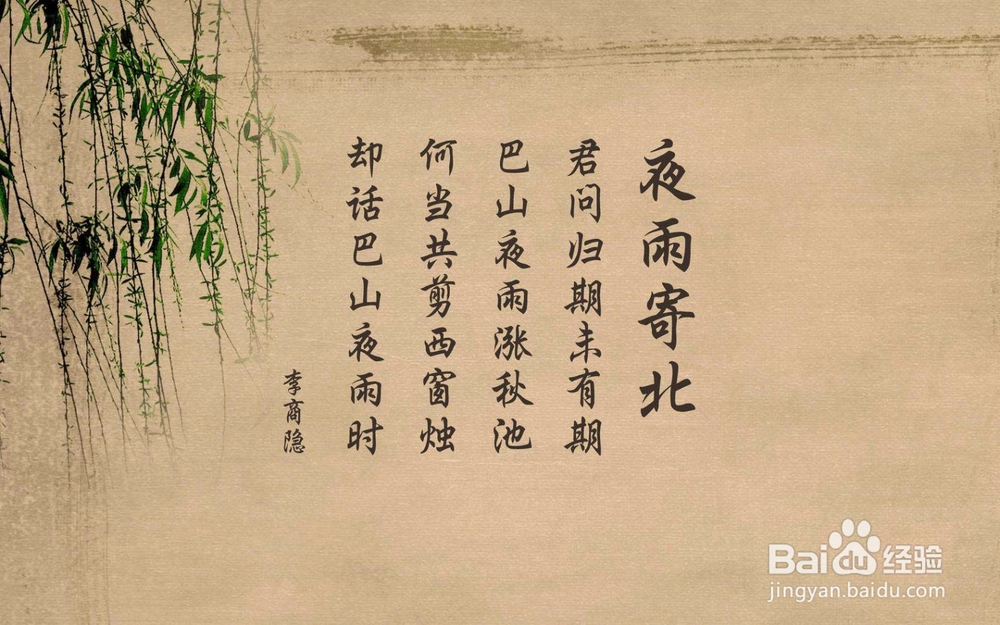 夜雨寄北
君问归期未有期
巴山夜雨涨秋池
何当共剪西窗烛
却话巴山夜雨时
李商隐
Baidu经验
jingyan.baidu.com